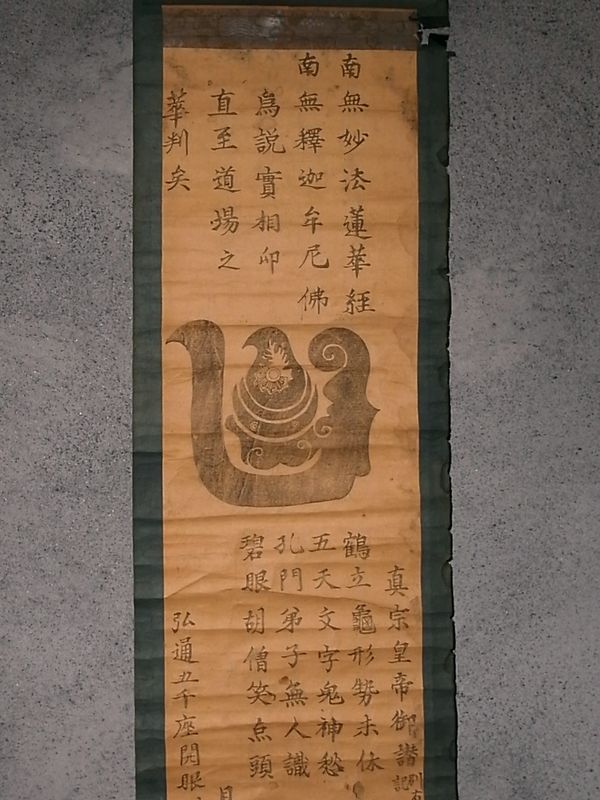 南無妙法蓮華經
南無釋迦牟尼佛
為説實相印
直至道場之
華判矣
真宗皇帝御讃
鶴立龜形勢未休
五天文字鬼神愁
孔門弟子無人識
碧眼胡僧笑点頭
弘通五千座開眼